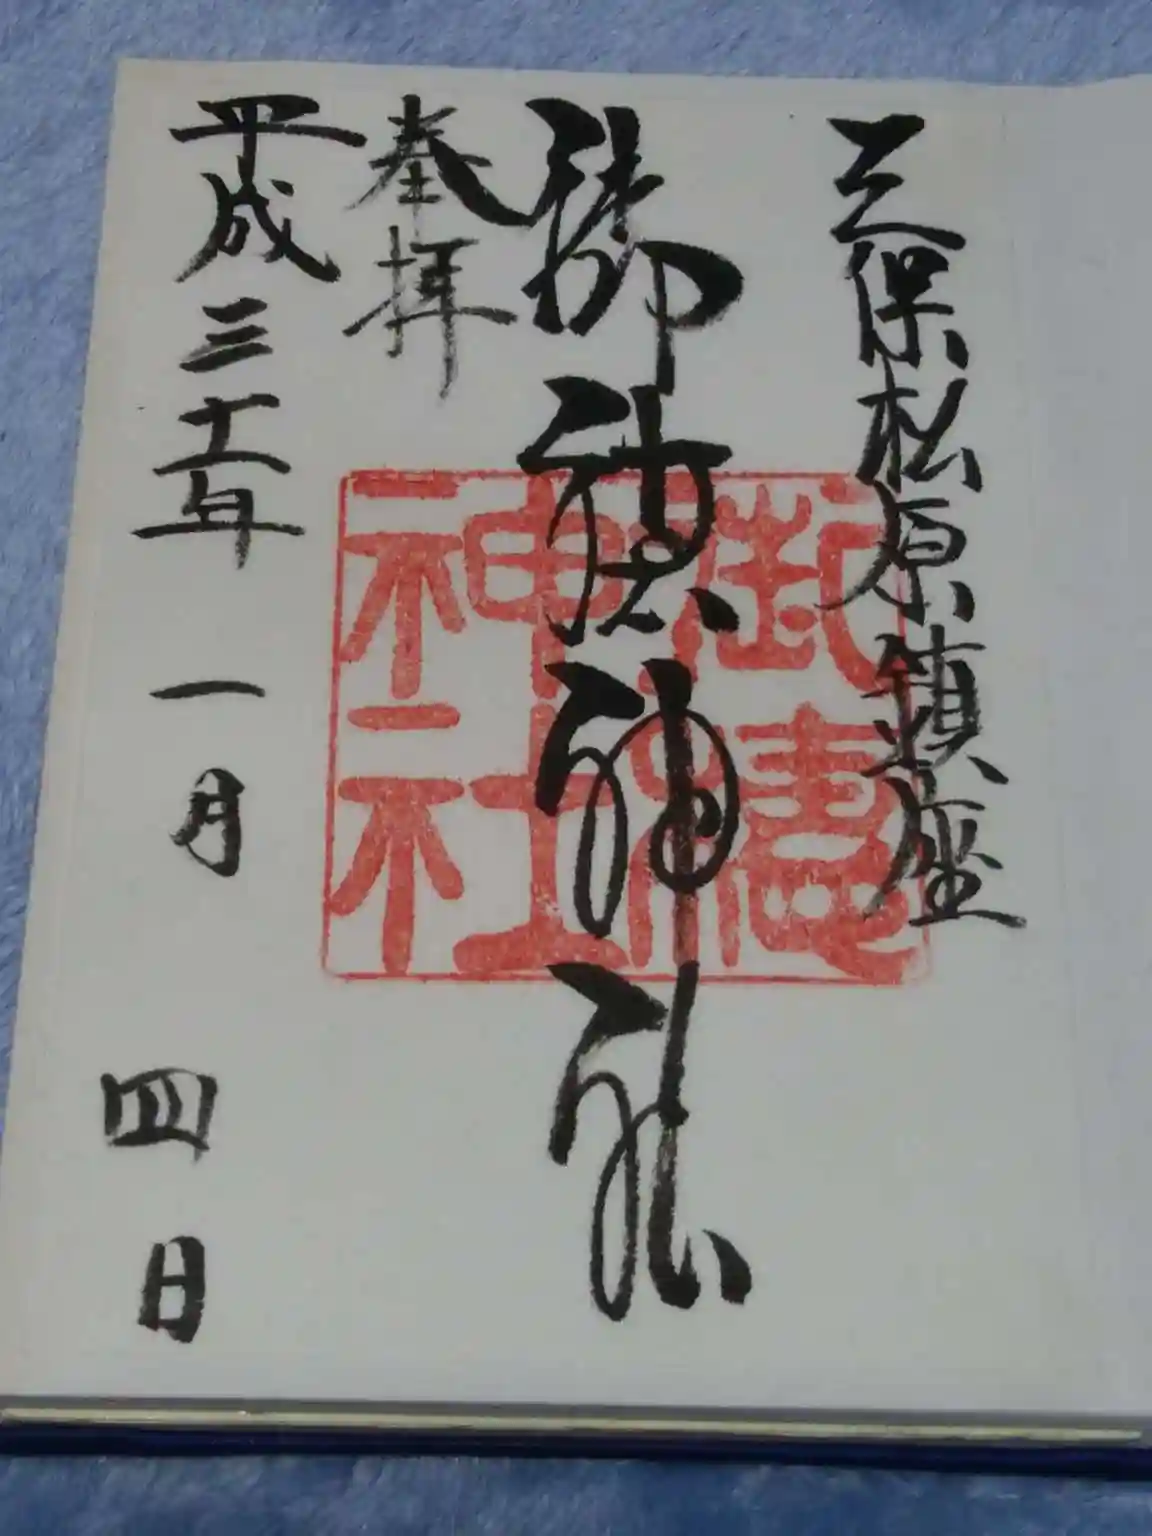 三保松原鎮座
御穂神社
御穂神社
奉拝
平成三十一年一月四日